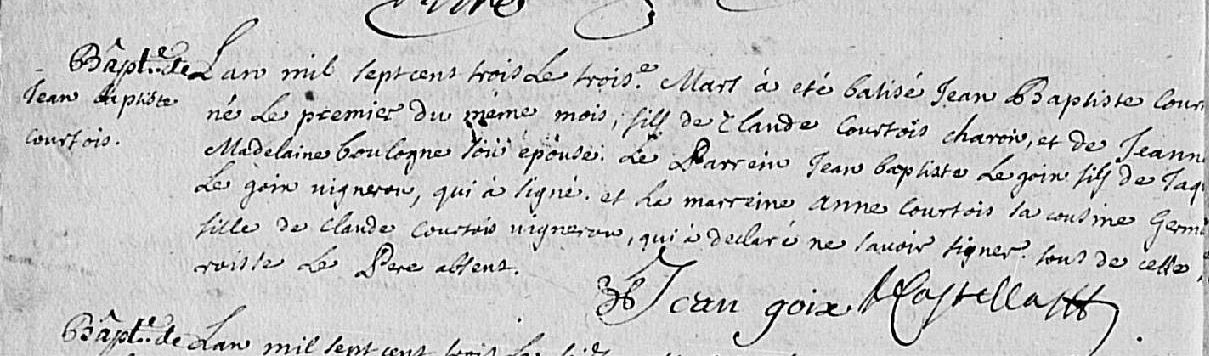 Bâpt.e de
Jean baptiste
courtois.
Lan mil sept cens trois Le trois.e Mars à eté batisé Jean Baptiste Cour
né Le premier du même mois, fils de Claude Courtois charon, et de Jeanne
Madelaine boulogne son épouse. Le Parrein Jean baptiste Le goix fils de Jaq
Le goix vigneron, qui à signé. et La marreine Anne Courtois sa cousine Germ
fille de Claude Courtois vigneron, qui à declaré ne savoir signer. tous de cette
roisse Le Pere absent.
Jean goix
Bâpt.e de Lan mil sept cent trois Le